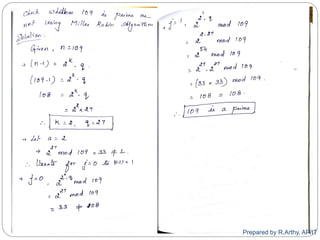 Check whether 109 is prime or
not using Miller Rabin algorithm
Solution:
Given, n=109
→ (n-1) = 2^k . q
(109-1) = 2^k . q
108 = 2^k . q
= 2^2 * 27
∴ k = 2, q = 27
→ Let a = 2
→ 2^27 mod 109 = 33 ≠ 1.
∴ Iterate for j=0 to k-1 = 1
→ j=0, 2^{2^0.q} mod 109
= 2^27 mod 109
= 33 ≠ 108
, j=1, 2^{2^1.q} mod 109
= 2^{2.27} mod 109
= 2^54 mod 109
= 2^27 . 2^27 mod 109
= (33 * 33) mod 109.
= 108 = 108.
∴ 109 is a prime
Prepared by R.Arthy, AP/IT